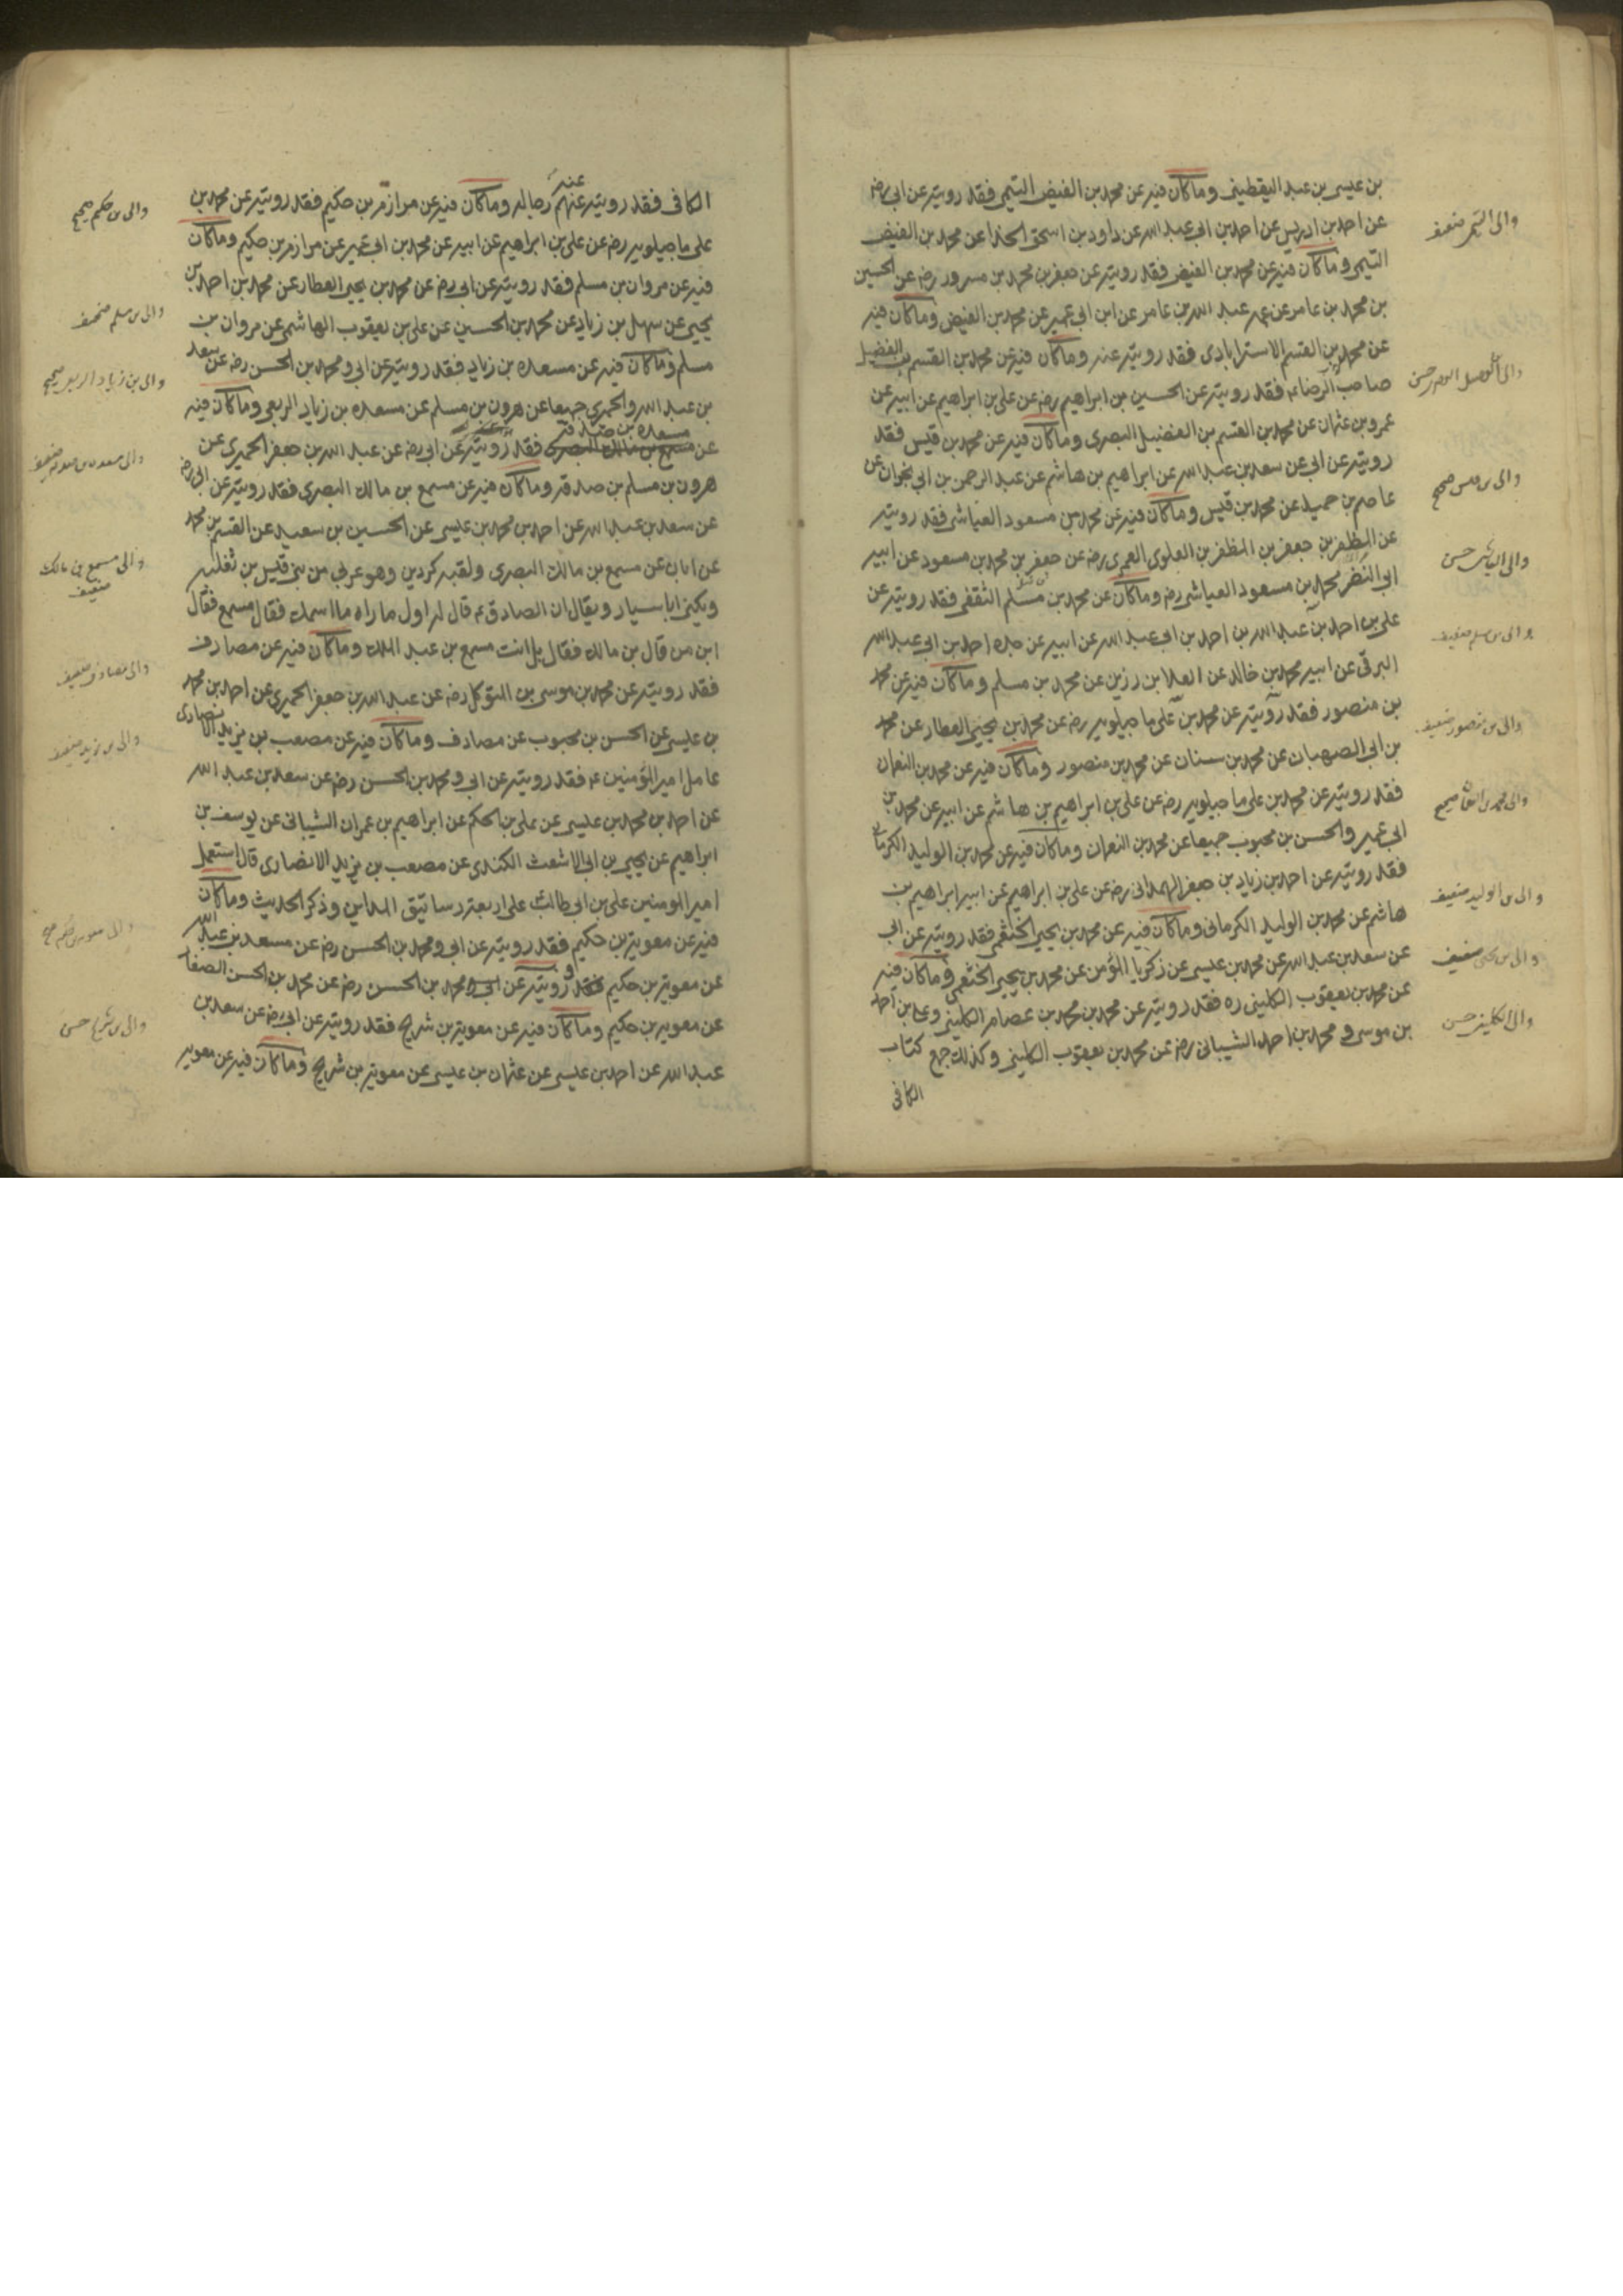 بن عيسى بن عبد اليقطينى وما كان فيه عن محمد بن الفيض التيمى فقد رويته عن ابى رضه
عن احمد بن ادريس عن احمد بن ابى عبد الله عن داود بن اسحق الحذا عن محمد بن الفيض
التيمى وما كان فيه عن محمد بن الفيض فقد رويته عن جعفر بن محمد بن مسرور رضه عن الحسين
بن محمد بن عامر عن عمه عبد الله بن عامر عن ابن ابى عمير عن محمد بن الفيض وما كان فيه
عن محمد بن القسم الاسترابادى فقد رويته عنه وما كان فيه عن محمد بن القسم بن الفضيل
صاحب الرضا ع فقد رويته عن الحسين بن ابراهيم رضه عن على بن ابراهيم عن ابيه عن
عمرو بن عثمان عن محمد بن القسم بن الفضيل البصرى وما كان فيه عن محمد بن قيس فقد
رويته عن ابى عن سعد بن عبد الله عن ابراهيم بن هاشم عن عبد الرحمن بن ابى نجران عن
عاصم بن حميد عن محمد بن قيس وما كان فيه عن محمد بن مسعود العياشى فقد رويته
عن المظفر بن جعفر بن المظفر بن العلوى العمرى رضه عن جعفر بن محمد بن مسعود عن ابيه
ابى النضر محمد بن مسعود العياشى رضه وما كان عن محمد بن مسلم الثقفى فقد رويته عن
على بن احمد بن عبد الله بن احمد بن ابى عبد الله عن ابيه عن جده احمد بن ابى عبد الله
البرقى عن ابيه محمد بن خالد عن العلا بن رزين عن محمد بن مسلم وما كان فيه عن محمد
بن منصور فقد رويته عن محمد بن على ماجيلويه رضه عن محمد بن يحيى العطار عن محمد
بن ابى الصهبان عن محمد بن سنان عن محمد بن منصور وما كان فيه عن محمد بن النعمان
فقد رويته عن محمد بن على ماجيلويه رضه عن على بن ابراهيم بن هاشم عن ابيه عن محمد بن
ابى عمير والحسن بن محبوب جميعا عن محمد بن النعمان وما كان فيه عن محمد بن الوليد الكرمانى
فقد رويته عن احمد بن زياد بن جعفر الهمدانى رضه عن على بن ابراهيم عن ابيه ابراهيم بن
هاشم عن محمد بن الوليد الكرمانى وما كان فيه عن محمد بن يحيى الخثعمى فقد رويته عن ابى
عن سعد بن عبد الله عن محمد بن عيسى عن زكريا المؤمن عن محمد بن يحيى الخثعمى وما كان فيه
عن محمد بن يعقوب الكلينى ره فقد رويته عن محمد بن محمد بن عصام الكلينى وعلى بن احمد
بن موسى و محمد بن احمد الشيبانى رضه عن محمد بن يعقوب الكلينى وكذلك جميع كتاب
الكافى
والى التيمى ضعيف
والى بن قيس صحيح
والى العياشى حسن
والى بن مسلم ضعيف
والى بن منصور ضعيف
والى محمد بن النعمان صحيح
والى بن الوليد ضعيف
والى بن يحيى ضعيف
والى الكلينى حسن
الكافى فقد رويته عنهم عنه رجاله وما كان فيه عن مرازم بن حكيم فقد رويته عن محمد بن
على ماجيلويه رضه عن على بن ابراهيم عن ابيه عن محمد بن ابى عمير عن مرازم بن حكيم وما كان
فيه عن مروان بن مسلم فقد رويته عن ابى رضه عن محمد بن يحيى العطار عن محمد بن احمد بن
يحيى عن سهل بن زياد عن محمد بن الحسين عن على بن يعقوب الهاشمى عن مروان بن
مسلم وما كان فيه عن مسعده بن زياد فقد رويته عن ابى ومحمد بن الحسن رضه عن سعد
بن عبد الله والحميرى جميعا عن هرون بن مسلم عن مسعده بن زياد الربعى وما كان فيه
مسعده بن صدقه
عن مسمع بن مالك البصرى فقد رويته عن ابى رضه عن عبد الله بن جعفر الحميرى عن
هرون بن مسلم بن صدقه وما كان فيه عن مسمع بن مالك البصرى فقد رويته عن ابى رضه
عن سعد بن عبد الله عن احمد بن محمد بن عيسى عن الحسين بن سعيد عن القسم بن محمد
عن ابان عن مسمع بن مالك البصرى ولقبه كردين وهو عربى من بنى قيس بن ثعلبه
ويكنى ابا سيار ويقال ان الصادق ع قال له اول ما راه ما اسمك فقال مسمع فقال
ابن من قال بن مالك فقال بل انت مسمع بن عبد الملك وما كان فيه عن مصادف
فقد رويته عن محمد بن موسى بن المتوكل رضه عن عبد الله بن جعفر الحميرى عن احمد بن محمد
بن عيسى عن الحسن بن محبوب عن مصادف وما كان فيه عن مصعب بن يزيد الانصارى
عامل امير المؤمنين ع فقد رويته عن ابى ومحمد بن الحسن رضه عن سعد بن عبد الله
عن احمد بن محمد بن عيسى عن على بن الحكم عن ابراهيم بن عمران الشيبانى عن يوسف بن
ابراهيم عن يحيى بن ابى الاشعث الكندى عن مصعب بن يزيد الانصارى قال استعملنى
امير المومنين على بن ابى طالب على اربعه رساتيق المداين وذكر الحديث وما كان
فيه عن معويه بن حكيم فقد رويته عن ابى ومحمد بن الحسن رضه عن سعد بن عبد الله
عن معويه بن حكيم فقد رويته عن ابى ومحمد بن الحسن رضه عن محمد بن الحسن الصفار
عن معويه بن حكيم وما كان فيه عن معويه بن شريح فقد رويته عن ابى رضه عن سعد بن
عبد الله عن احمد بن عيسى عن عثمان بن عيسى عن معويه بن شريح وما كان فيه عن معويه
والى بن حكيم صحيح
والى بن مسلم ضعيف
والى بن زياد الربعى صحيح
والى مسعده بن صدقه ضعيف
والى مسمع بن مالك
ضعيف
والى مصادف ضعيف
والى بن يزيد ضعيف
والى معويه بن حكيم صحيح
والى بن شريح حسن